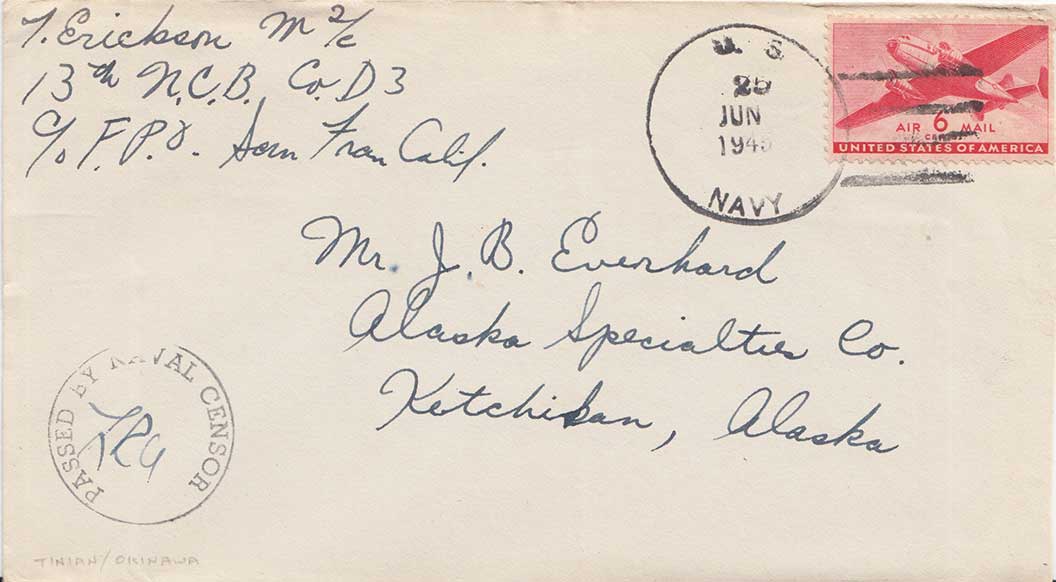 T. Erickson M 2/c
13th N.C.B. Co. D 3
c/o F.P.O. San Fran Calif.
U. S.
25
JUN
1945
NAVY
AIR 6 MAIL
CENTS
UNITED STATES OF AMERICA
Mr. J. B. Everhard
Alaska Specialties Co.
Ketchikan, Alaska
PASSED BY NAVAL CENSOR
TINIAN/OKINAWA